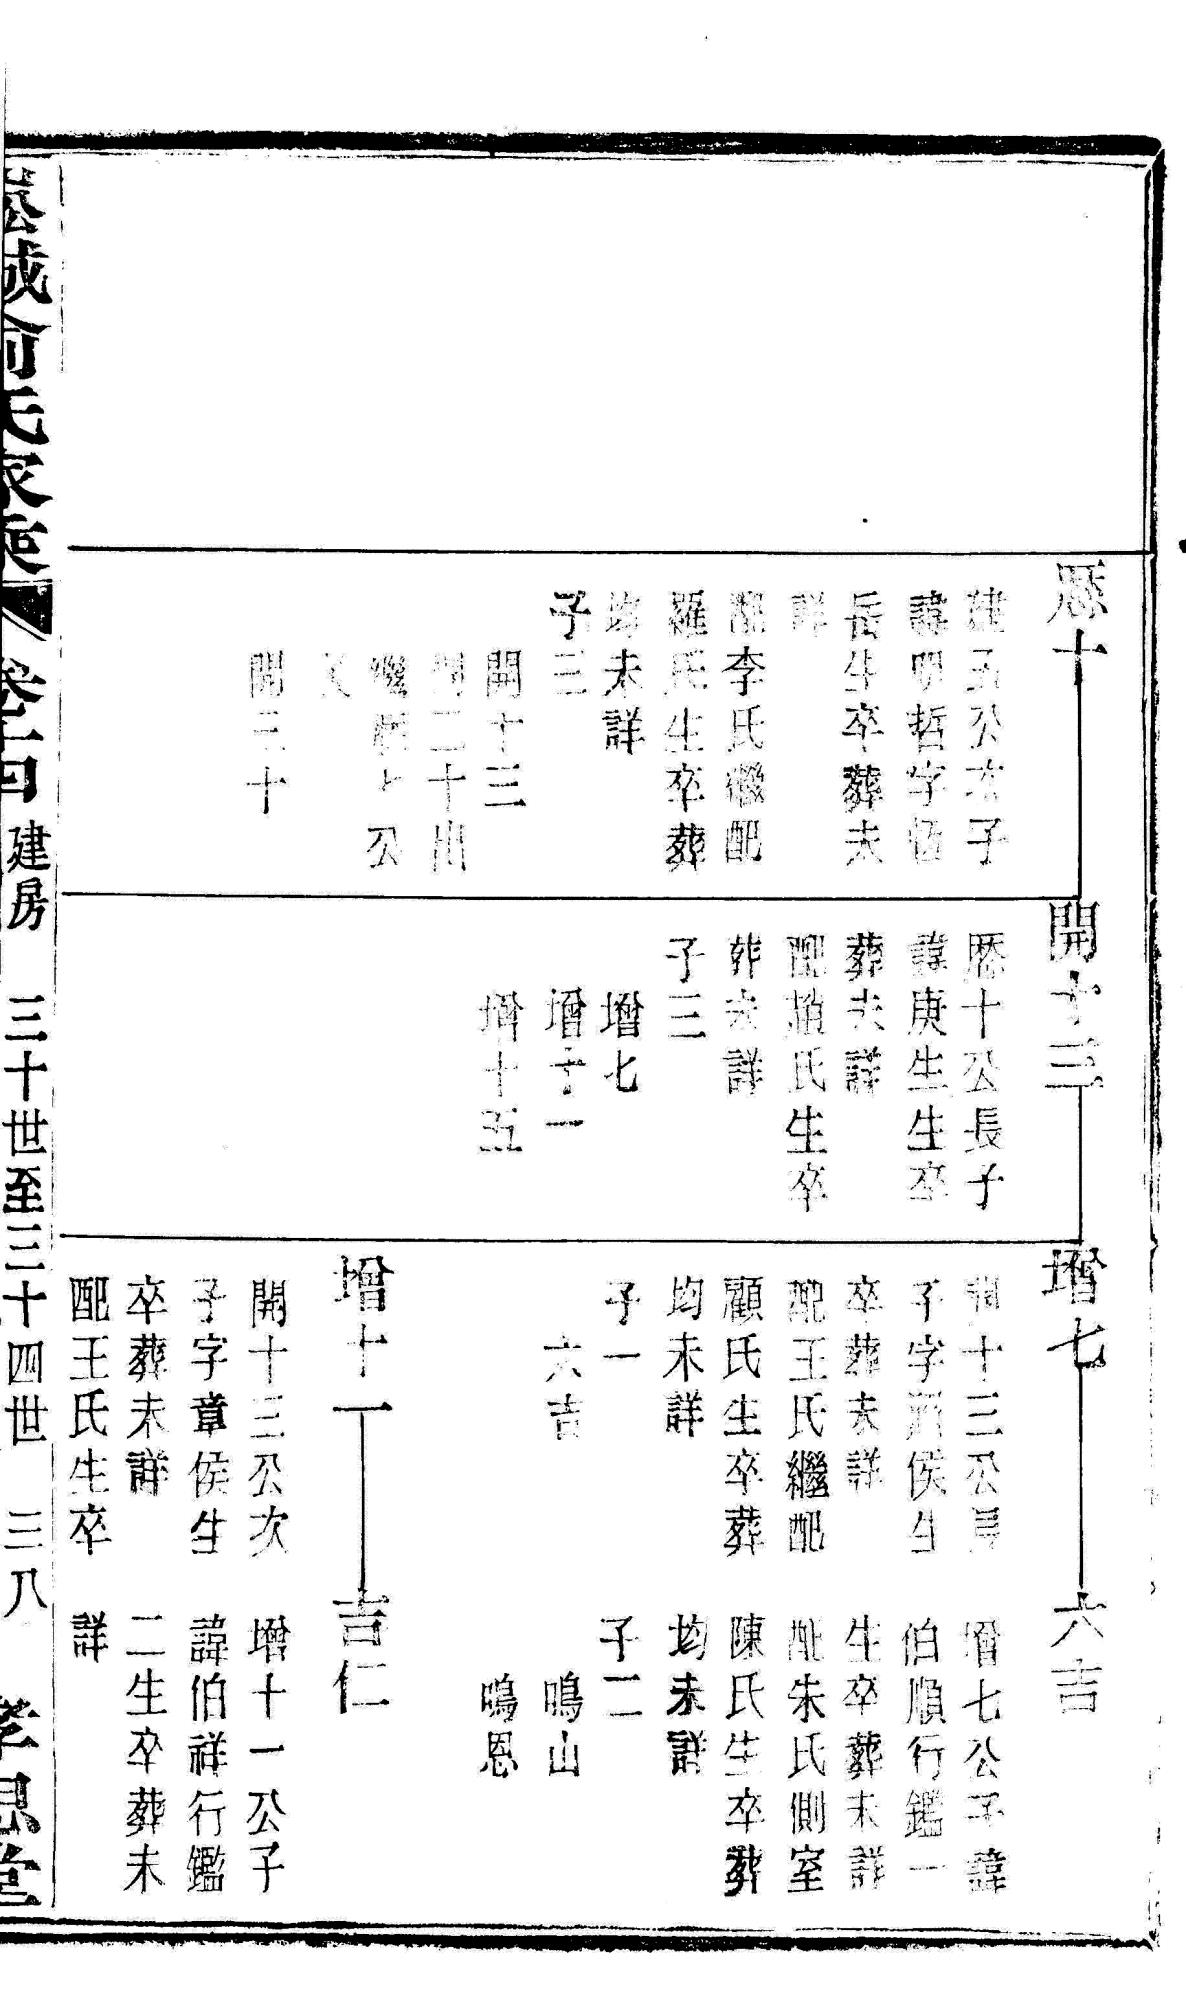 歷十
建五公次子
諱明哲字恆
岳生卒葬未
詳
配李氏繼配
羅氏生卒葬
均未詳
子三
開十三
開二十出
繼歷七公
又
開三十
開十三
歷十公長子
諱庚生生卒
葬未詳
配趙氏生卒
葬未詳
子三
增七
增十一
增十五
增七
開十三公長
子字 侯生
卒葬未詳
配王氏繼配
顧氏生卒葬
均未詳
子一
六吉
增十一
開十三公次
子字章侯生
卒葬未詳
配王氏生卒
六吉
增七公子諱
伯順行鑑一
生卒葬未詳
配朱氏側室
陳氏生卒葬
均未詳
子二
鳴山
鳴恩
吉仁
增十一公子
諱伯祥行鑑
二生卒葬未
詳
俞氏家乘 建房 三十世至三十四世 三八 孝思堂